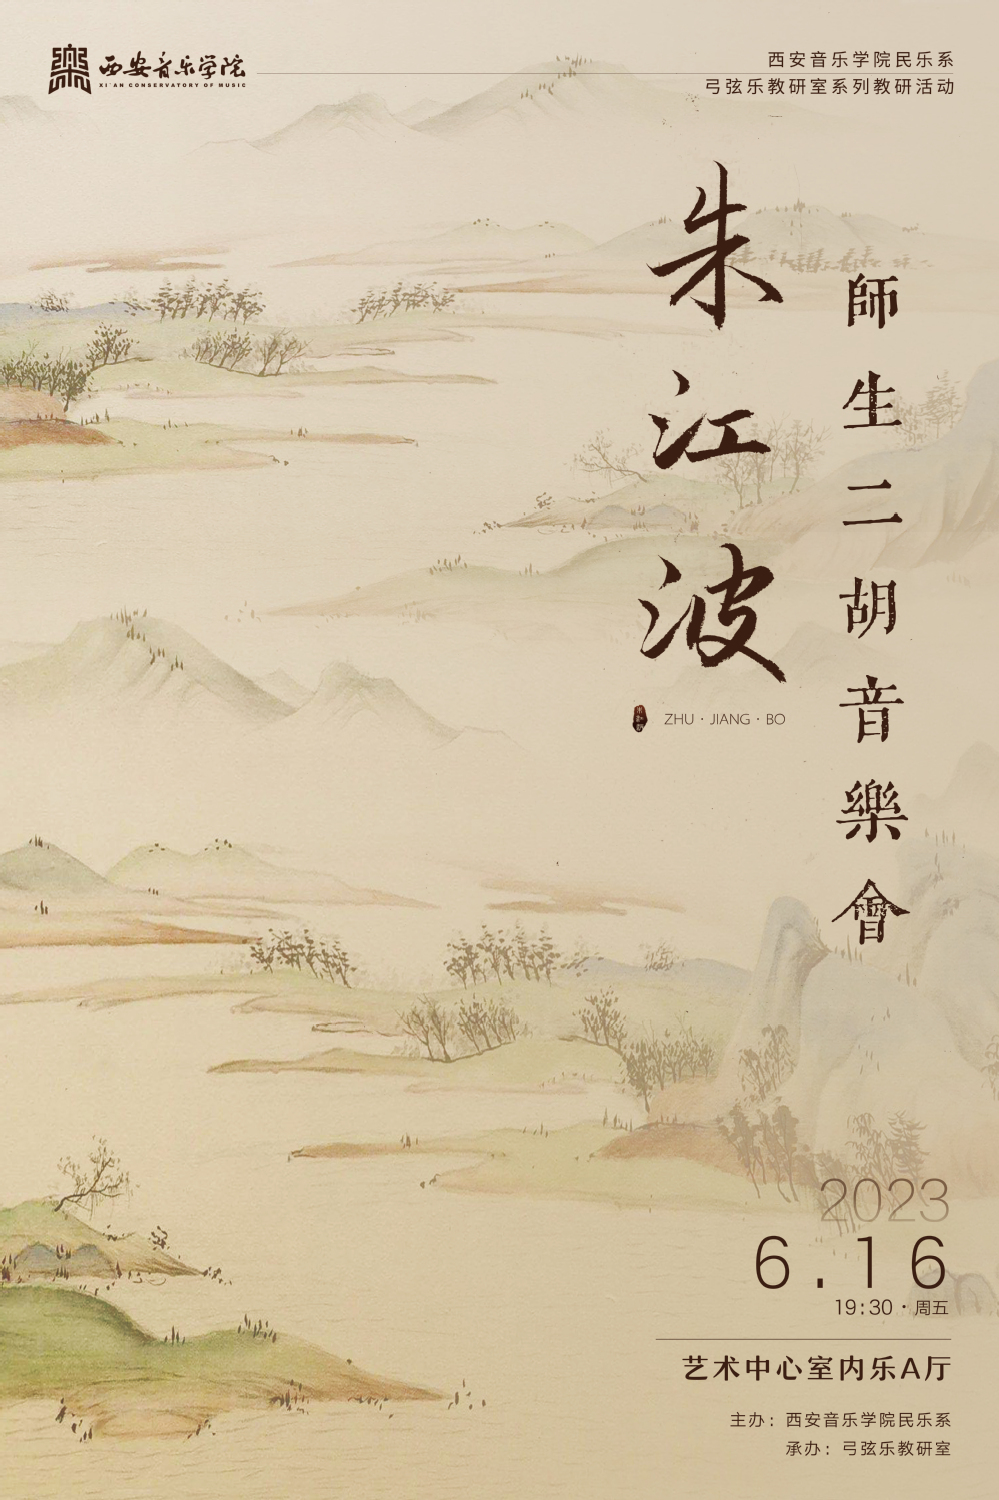 西安音乐学院
XI'AN CONSERVATORY OF MUSIC
西安音乐学院民乐系
弓弦乐教研室系列教研活动
朱江波
ZHU · JIANG · BO
師生二胡音樂會
2023
6.16
19:30 · 周五
艺术中心室内乐A厅
主办：西安音乐学院民乐系
承办：弓弦乐教研室